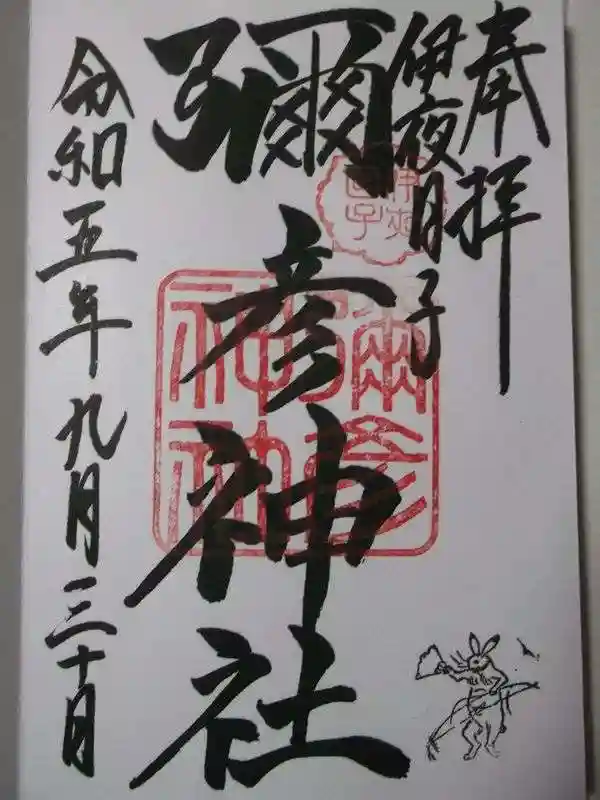 奉拝
伊夜日子
伊夜
日子
彌彦神社
彌彦
神社
令和五年九月三十日